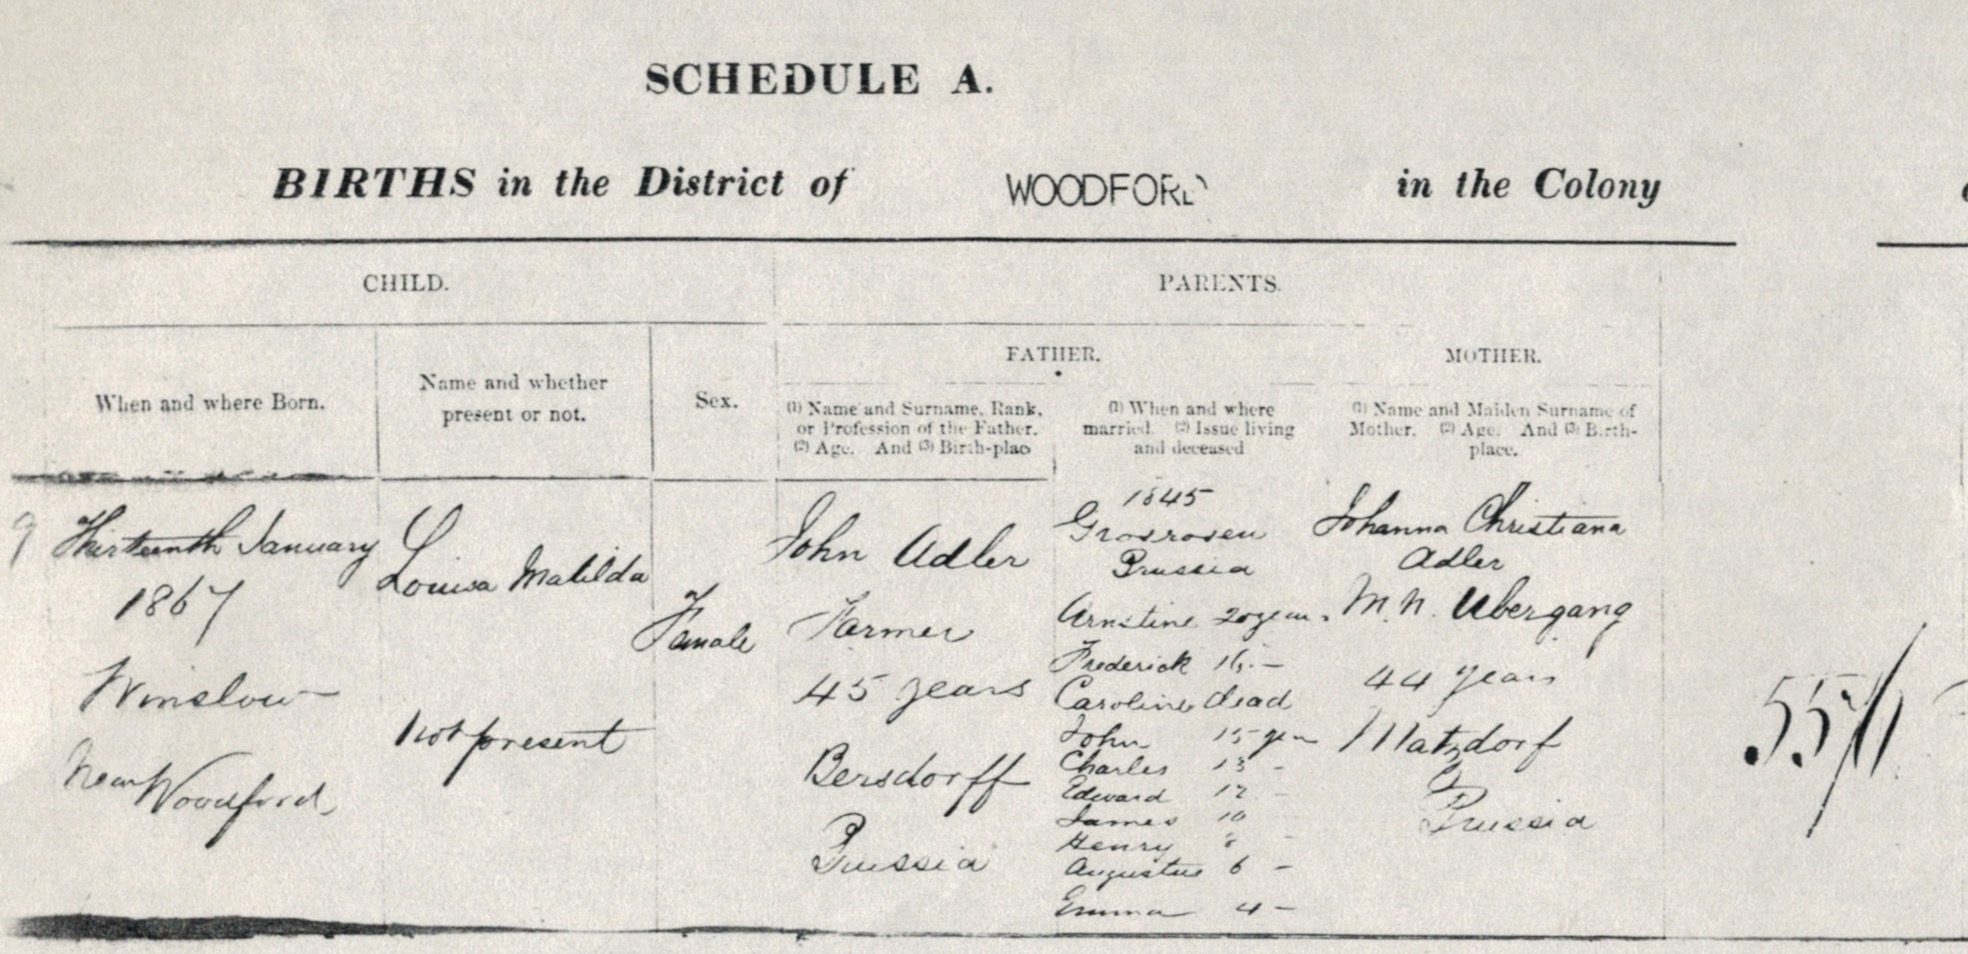 SCHEDULE A.
BIRTHS in the District of WOODFORD in the Colony
CHILD.
PARENTS.
FATHER.
MOTHER.
When and where Born.
Name and whether
present or not.
Sex.
(1) Name and Surname, Rank,
or Profession of the Father.
(2) Age. And (3) Birth-plac
(1) When and where
married. (2) Issue living
and deceased
(1) Name and Maiden Surname of
Mother. (2) Age. And (3) Birth-
place.
9
Thirteenth January
1867
Winslow
Near Woodford,
Louisa Matilda
Not present
Female
John Adler
Farmer
45 years
Bersdorff
Prussia
1845
Grosrosen
Prussia
Arnstine 20 years
Frederick 16 -
Caroline dead
John 15 years
Charles 13 -
Edward 12 -
James 10
Henry 8 -
Augustus 6 -
Emma 4 -
Johanna Christiana
Adler
M. N. Ubergang
44 years
Matzdorf
Prussia